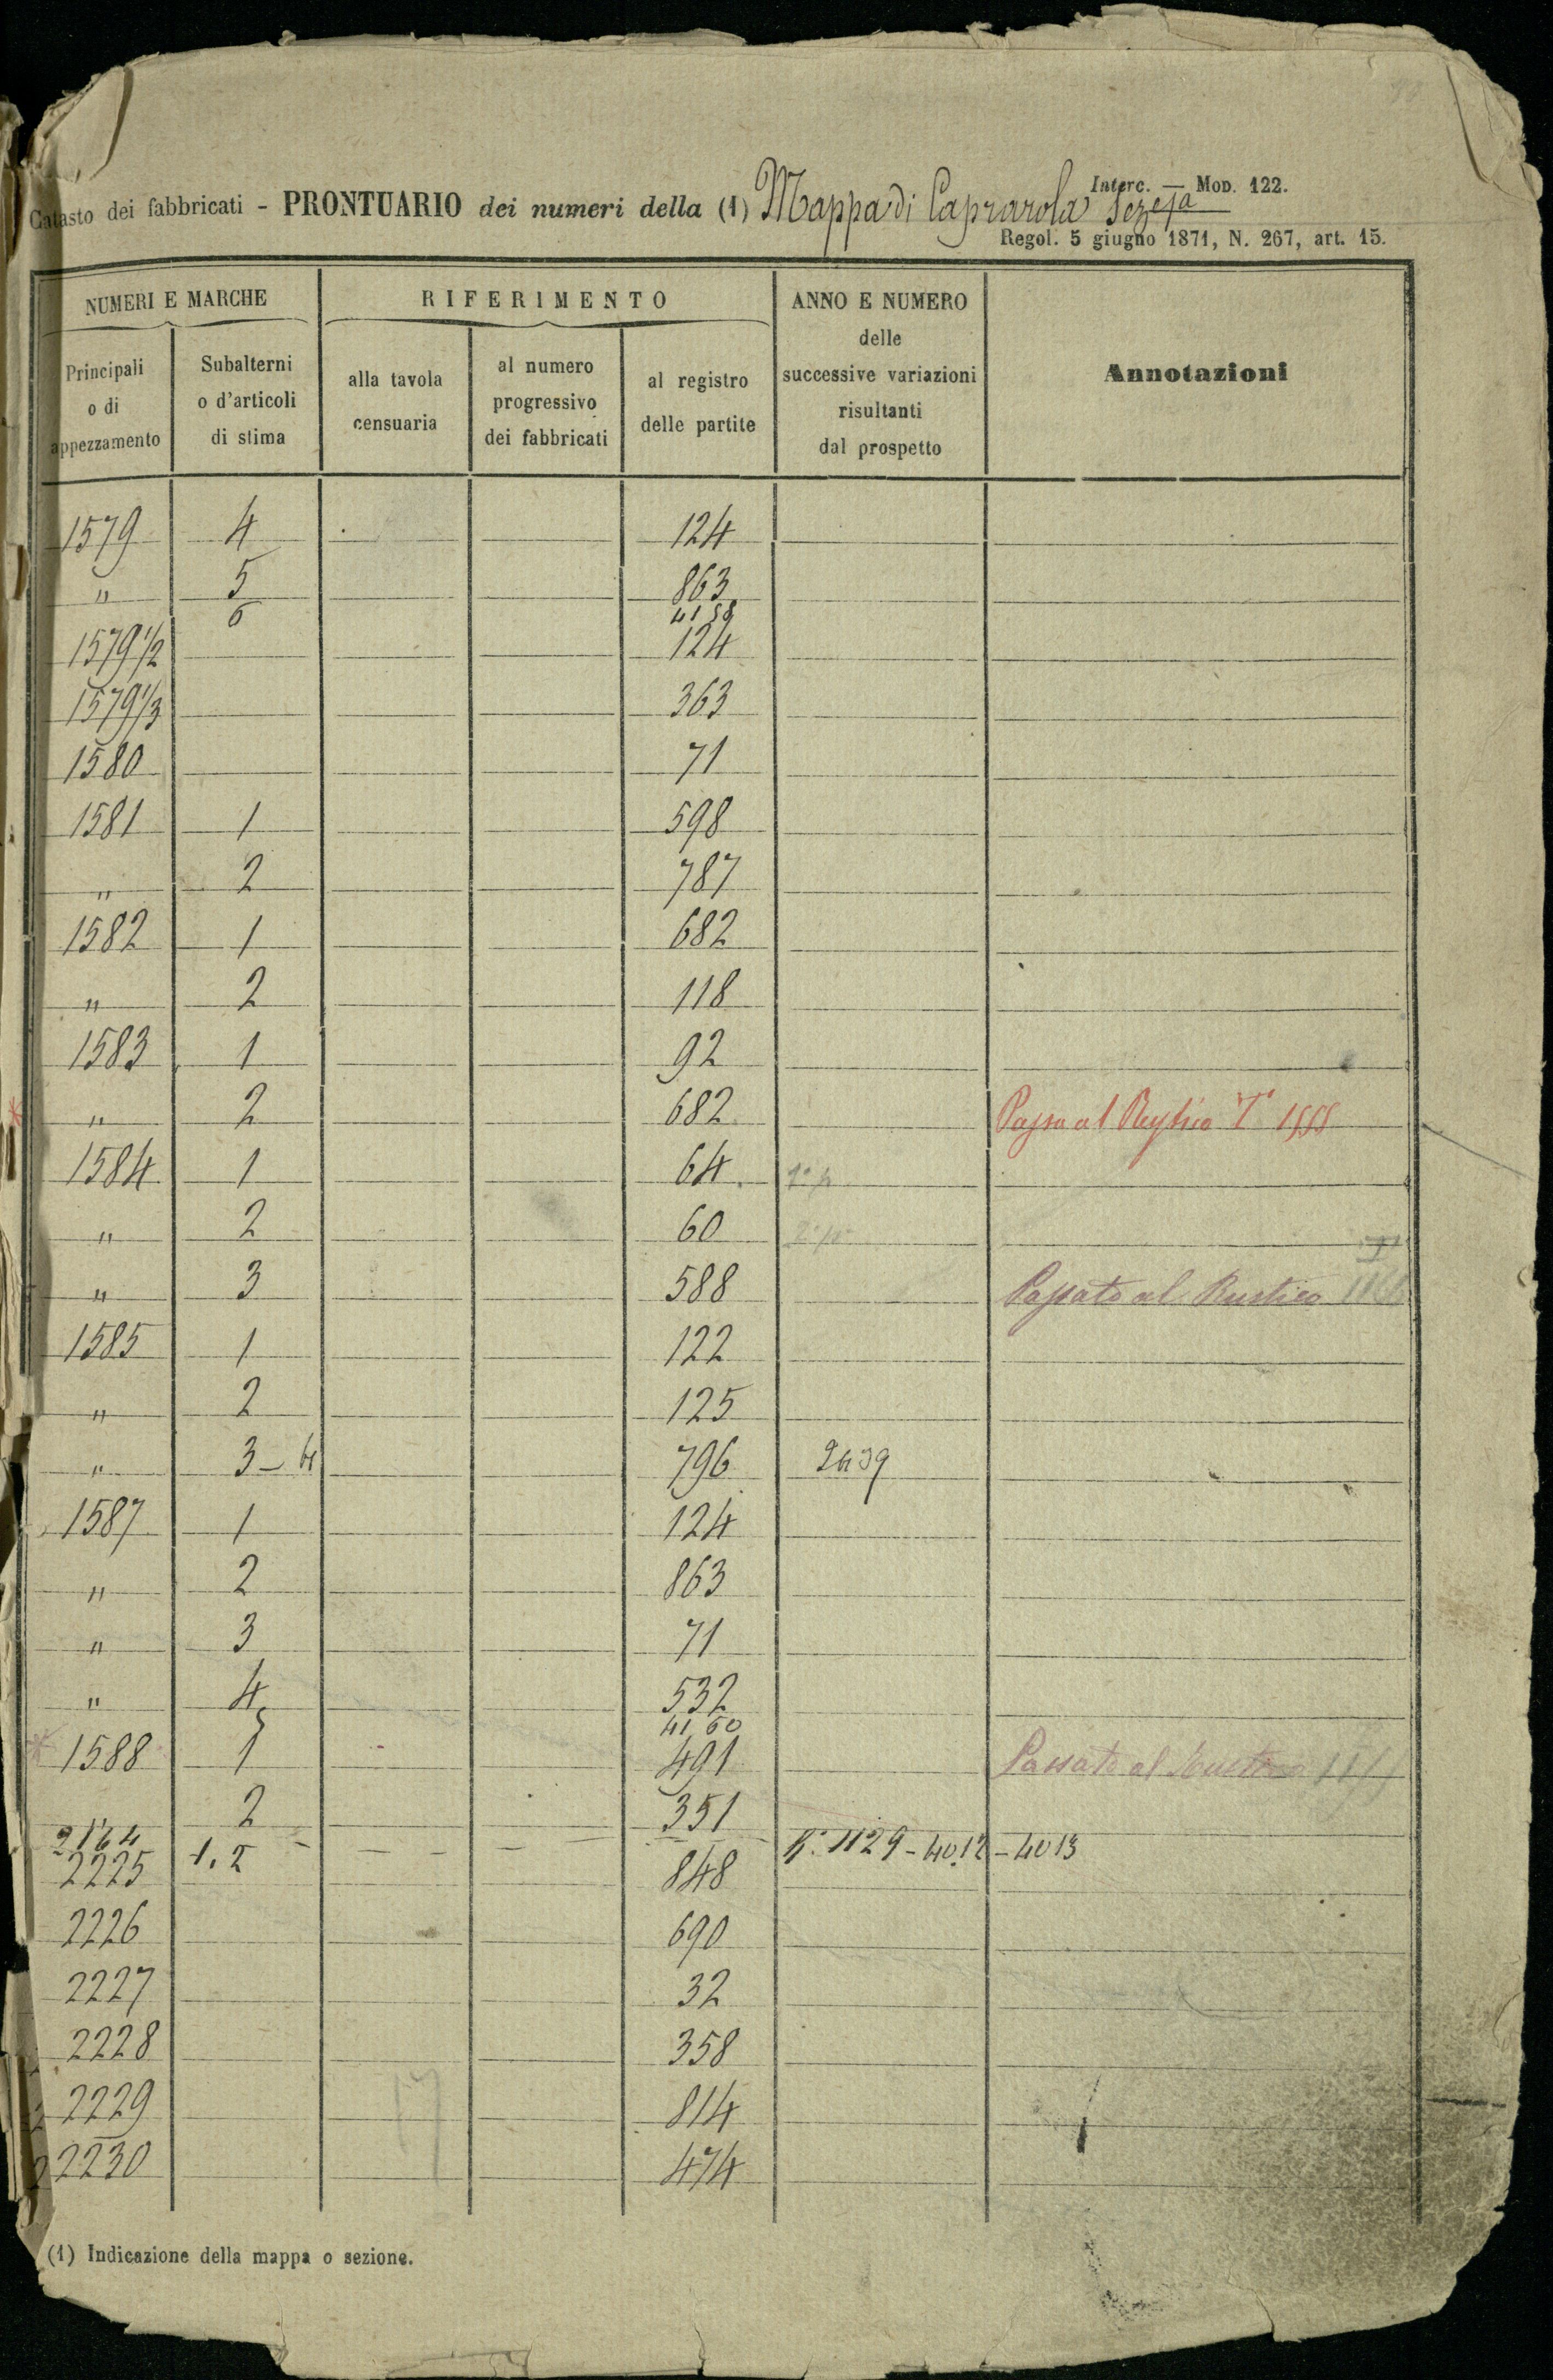 Interc. — Mod. 122.
Catasto dei fabbricati - PRONTUARIO dei numeri della (1) Mappa di Caprarola
Regol. 5 giugno 1871, N. 267, art. 15.
NUMERI E MARCHE RIFERIMENTO ANNO E NUMERO delle successive variazioni risultanti dal prospetto Annotazioni
Principali o di appezzamento Subalterni o d'articoli di stima alla tavola censuaria al numero progressivo dei fabbricati al registro delle partite
1579 4 124
" 5 863
6 4158
1579 1/2 124
1579 1/3 363
1580 71
1581 1 598
" 2 787
1582 1 682
" 2 118
1583 1 92
" 2 682
1584 1 64
" 2 60
" 3 588 Passato al Rustico
1585 1 122
" 2 125
" 3-4 796 2439
1587 1 124
" 2 863
" 3 71
" 4 532
5 4160
1588 1 491 Passato al
2 351
2164 1.2 - - - - 1129-4012-4013
2225 848
2226 690
2227 32
2228 358
2229 814
2230 474
(1) Indicazione della mappa o sezione.